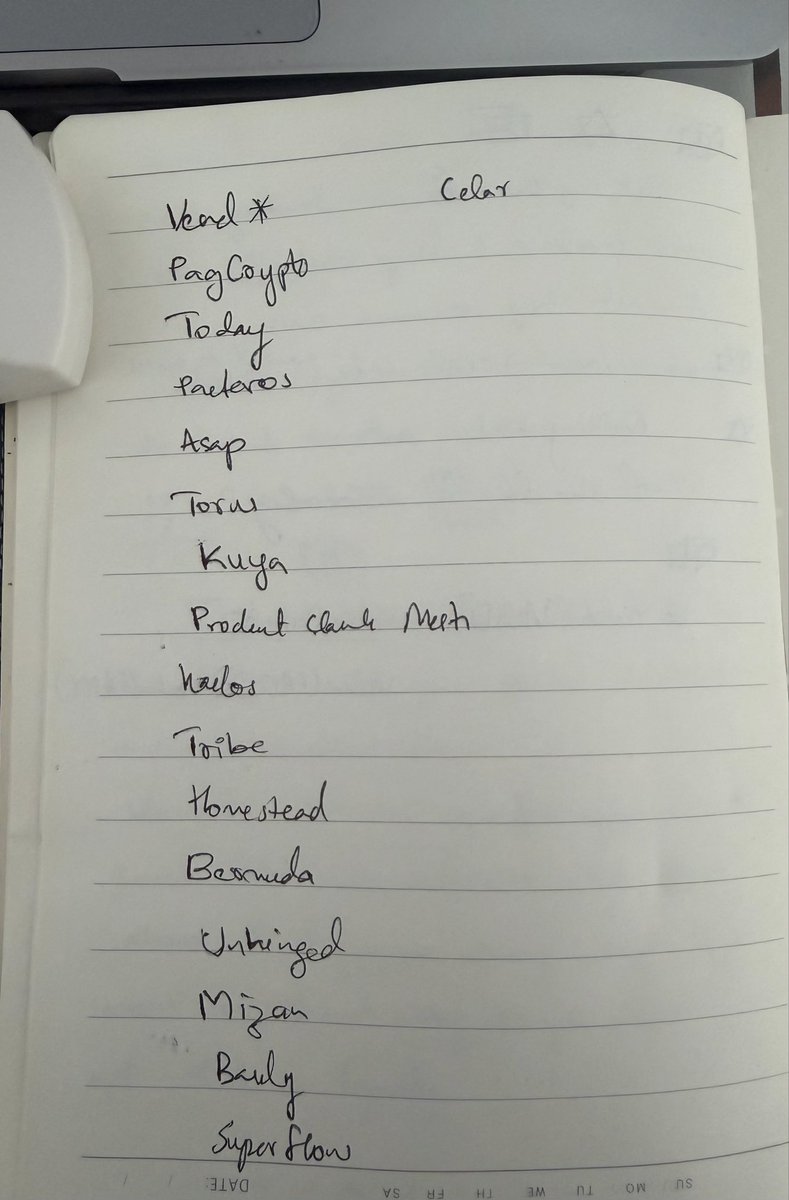 Celar
Vend *
PagCrypto
Today
Pacteros
Asap
Torus
Kuya
Product Clank Mesh
Kaelos
Tribe
Homestead
Bermuda
Unhinged
Mizan
Superflow
DATE: / /
SU MO TU WE TH FR SA